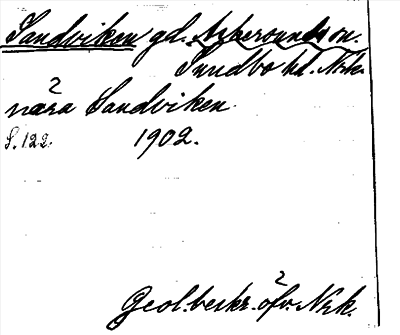 Sandviken gd. Askersunds sn.
Sundbo hd. Nrk.
2
nära Sandviken.
S. 122. 1902.
2
Geol. beskr. öfv. Nrk.